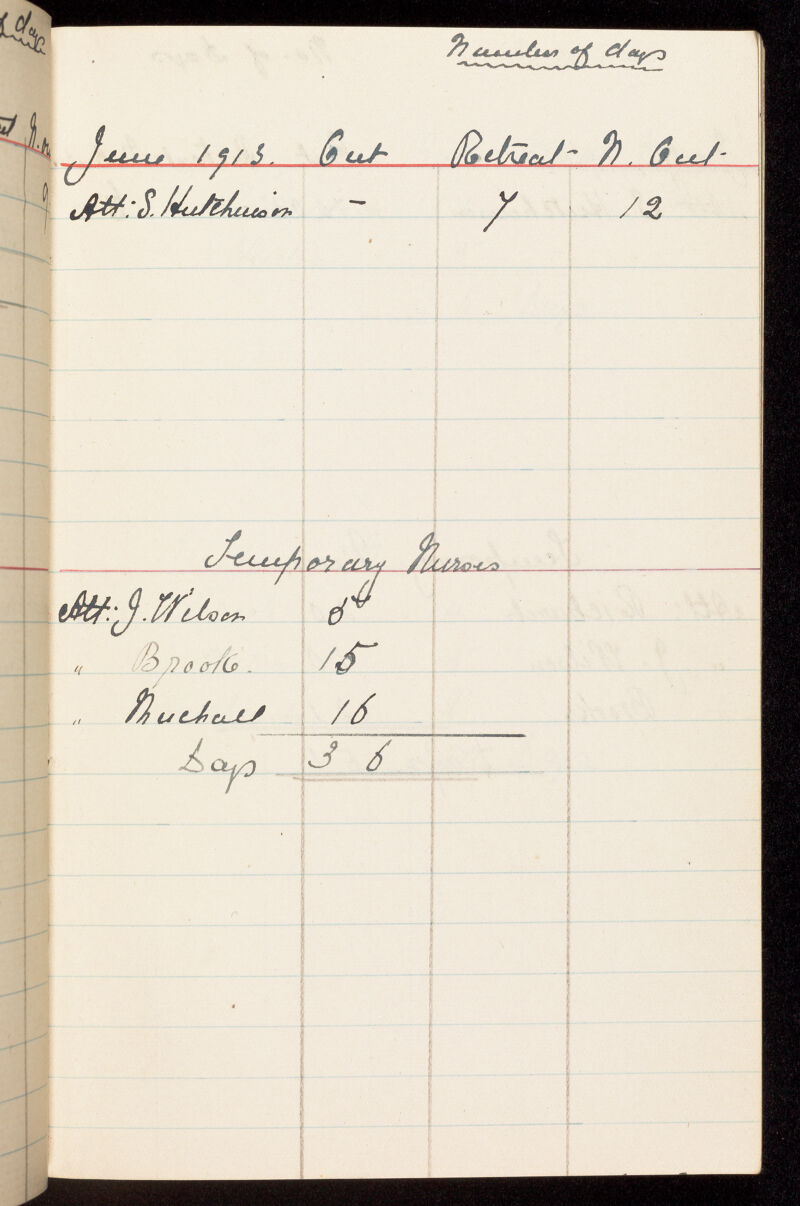 Number of days
June 1913. Out Retreat N. Out
Att: S. Hutchinson - 7 12
Temporary Nurses
Att: J. Wilson 5
" Brook. 15
" Nuchall 16
Days 36
days